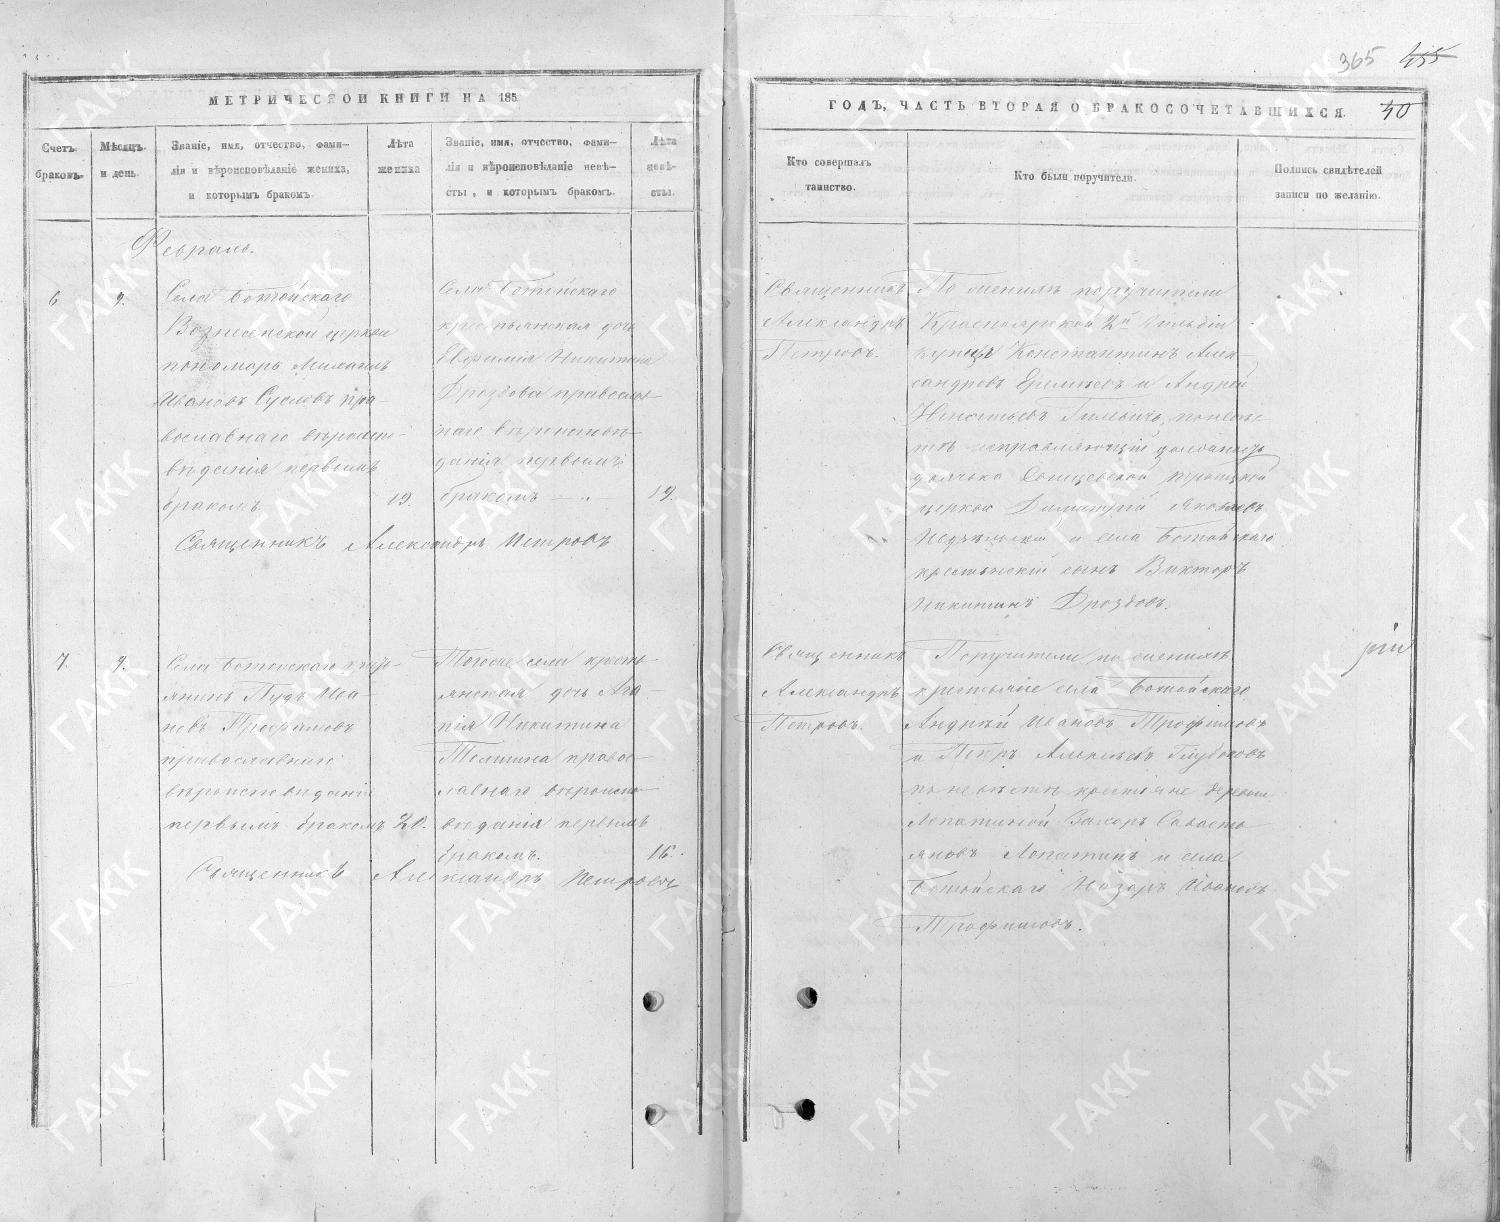 365 455
МЕТРИЧЕСКОЙ КНИГИ НА 185
ГОДЪ, ЧАСТЬ ВТОРАЯ О БРАКОСОЧЕТАВШИХСЯ.
40
Счетъ
браковъ.
Мѣсяцъ
и день.
Званіе, имя, отчество, фами—
лія и вѣроисповѣданіе жениха,
и которымъ бракомъ.
Лѣта
жениха
Званіе, имя, отчество, фами—
лія и вѣроисповѣданіе невѣ—
сты, и которымъ бракомъ.
Лѣта
невѣ—
сты.
Кто совершалъ
таинство.
Кто были поручители.
Подпись свидѣтелей
записи по желанію.
Февраль.
6
9.
Села Ботойскаго
Вознесенской церкви
пономарь Михаилъ
Ивановъ Сусловъ пра—
вославнаго вѣроиспо—
вѣданія первымъ
бракомъ
19.
Села Ботойскаго
крестьянская дочь
Евфимія Никитина
Дроздова православ—
наго вѣроисповѣ—
данія первымъ
бракомъ —
19.
Священникъ Александръ Петровъ
Священникъ
Александръ
Петровъ.
По женихѣ поручители
Красноярской 2й гильдіи
купцы Константинъ Алек—
сандровъ Еремѣевъ и Андрей
по невѣс—
тѣ исправляющій должность
дьячка Троицкой
церкви Димитрій Яковлевъ
и села Ботойскаго
крестьянскій сынъ Викторъ
Никитинъ Дроздовъ.
7.
9.
Села Ботойскаго кресть—
янинъ Пудъ Ива—
новъ Трофимовъ
православнаго
вѣроисповѣданія
первымъ бракомъ
20.
Тогоже села кресть—
янская дочь Ага—
пія Никитина
Телишна правос—
лавнаго вѣроиспо—
вѣданія первымъ
бракомъ.
16.
Священникъ Александръ Петровъ
Священникъ
Александръ
Петровъ.
Поручители по женихѣ
крестьяне села Ботойскаго
Андрей Ивановъ Трофимовъ
и Петръ Алексѣевъ
по невѣстѣ крестьяне деревни
Лопатиной Захаръ Савасть—
яновъ Лопатинъ и села
Ботойскаго Назаръ Ивановъ
Трофимовъ.
ГАКК